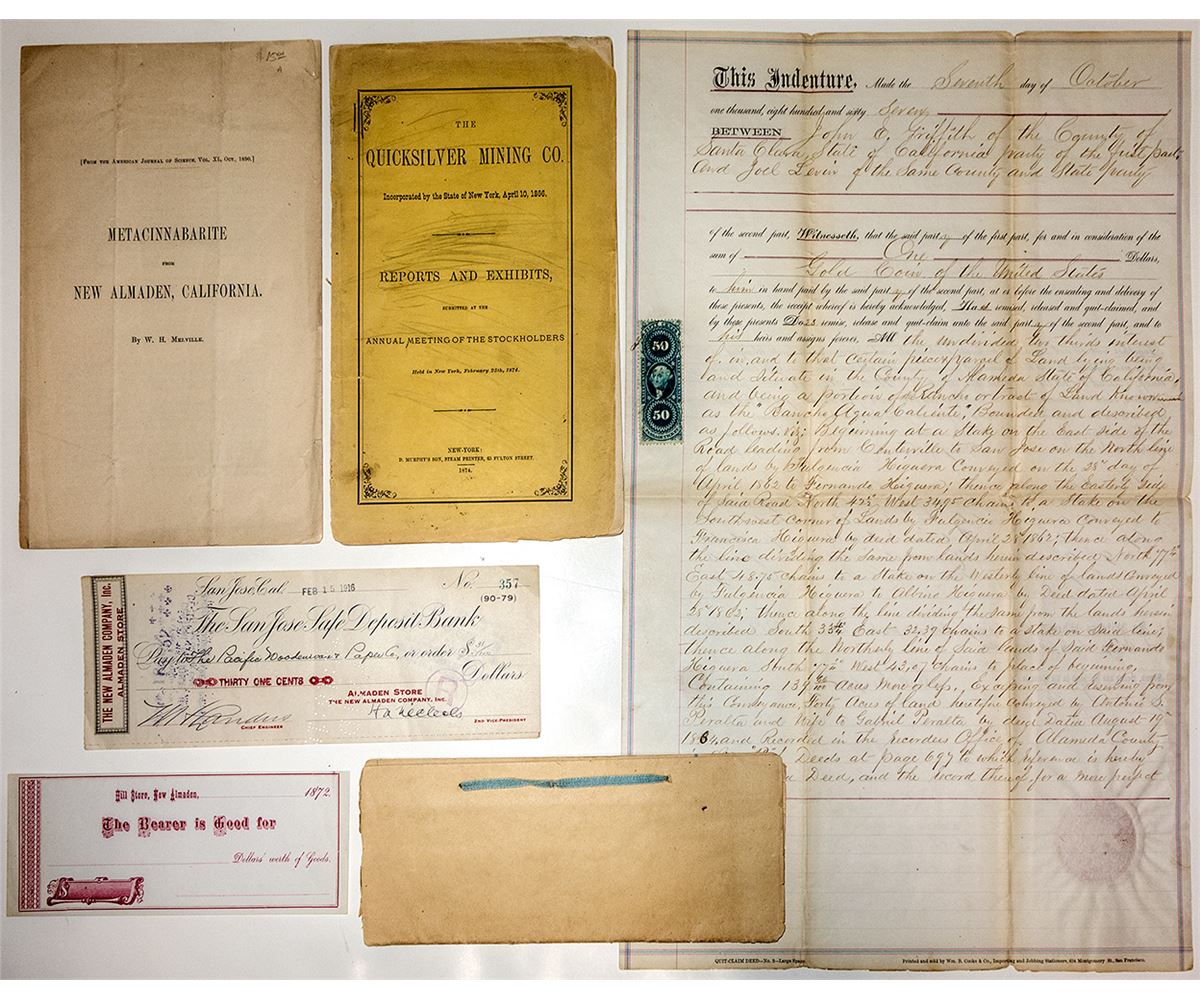 $15.00
A
[From the American Journal of Science, Vol. XL, Oct., 1890.]
METACINNABARITE
FROM
NEW ALMADEN, CALIFORNIA.
By W. H. Melville.
THE
QUICKSILVER MINING CO.
Incorporated by the State of New York, April 10, 1866.
REPORTS AND EXHIBITS,
SUBMITTED AT THE
ANNUAL MEETING OF THE STOCKHOLDERS
Held in New York, February 25th, 1874.
NEW-YORK:
D. MURPHY'S SON, STEAM PRINTER, 65 FULTON STREET.
1874.
THE NEW ALMADEN COMPANY, Inc.
ALMADEN STORE
San Jose, Cal. FEB 15 1916 No. 357
(90-79)
The San Jose Safe Deposit Bank
Pay to The Pacific Woodenware & Paper Co, or order $ 31/100
THIRTY ONE CENTS Dollars
ALMADEN STORE
THE NEW ALMADEN COMPANY, INC.
CHIEF ENGINEER
2ND VICE-PRESIDENT
Hill Store, New Almaden, 1872.
The Bearer is Good for
Dollars' worth of Goods.
This Indenture, Made the Seventh day of October
one thousand, eight hundred and sixty Seven
BETWEEN John C. Griffith of the County of
Santa Clara, State of California party of the first part,
And Joel Levin of the Same County and State party
of the second part, Witnesseth, that the said party of the first part, for and in consideration of the
sum of One Dollars,
Gold Coin of the United States
to him in hand paid by the said party of the second part, at or before the ensealing and delivery of
these presents, the receipt whereof is hereby acknowledged, Has remised, released and quit-claimed, and
by these presents Does remise, release and quit-claim unto the said party of the second part, and to
his heirs and assigns forever, All the undivided two thirds interest
of, in, and to that certain piece or parcel of Land lying being
and Situate in the County of Alameda State of California,
and being a portion of Rancho or tract of Land Known
as the "Rancho Agua Caliente", Bounded and described
as follows, viz; Beginning at a Stake on the East side of the
Road leading from Centerville to San Jose on the North line
of lands by Fulgencia Higuera Conveyed on the 28th day of
April 1862 to Fernando Higuera; thence along the Eastern line
of Said Road North 42½ West 34.95 chains to a Stake on the
Southwest Corner of Lands by Fulgencio Higuera Conveyed to
Francisca Higuera by deed dated April 28th 1862; thence along
the line dividing the Same from lands herein described North 77¼
East 48.75 chains to a Stake on the Westerly line of lands Conveyed
by Fulgencia Higuera to Albino Higuera by Deed dated April
28th 1862; thence along the line dividing the Same from the lands herein
described South 33¾ East 32.39 chains to a stake on Said line;
thence along the Northerly line of Said lands of Said Fernando
Higuera South 77¼ West 43.07 chains to place of beginning,
Containing 139 Acres More or less, Excepting and reserving from
this Conveyance, Forty Acres of land heretofore Conveyed by Antonio S.
Peralta and Wife to Gabriel Peralta by deed Dated August 19th
1864, and Recorded in the Recorders Office of Alameda County
Deeds at page 697 to which reference is hereby
Deed, and the record thereof, for a more perfect
50
50
QUIT-CLAIM DEED—No. 3—Large Space.
Printed and sold by Wm. B. Cooke & Co., Importing and Jobbing Stationers, 624 Montgomery St., San Francisco.